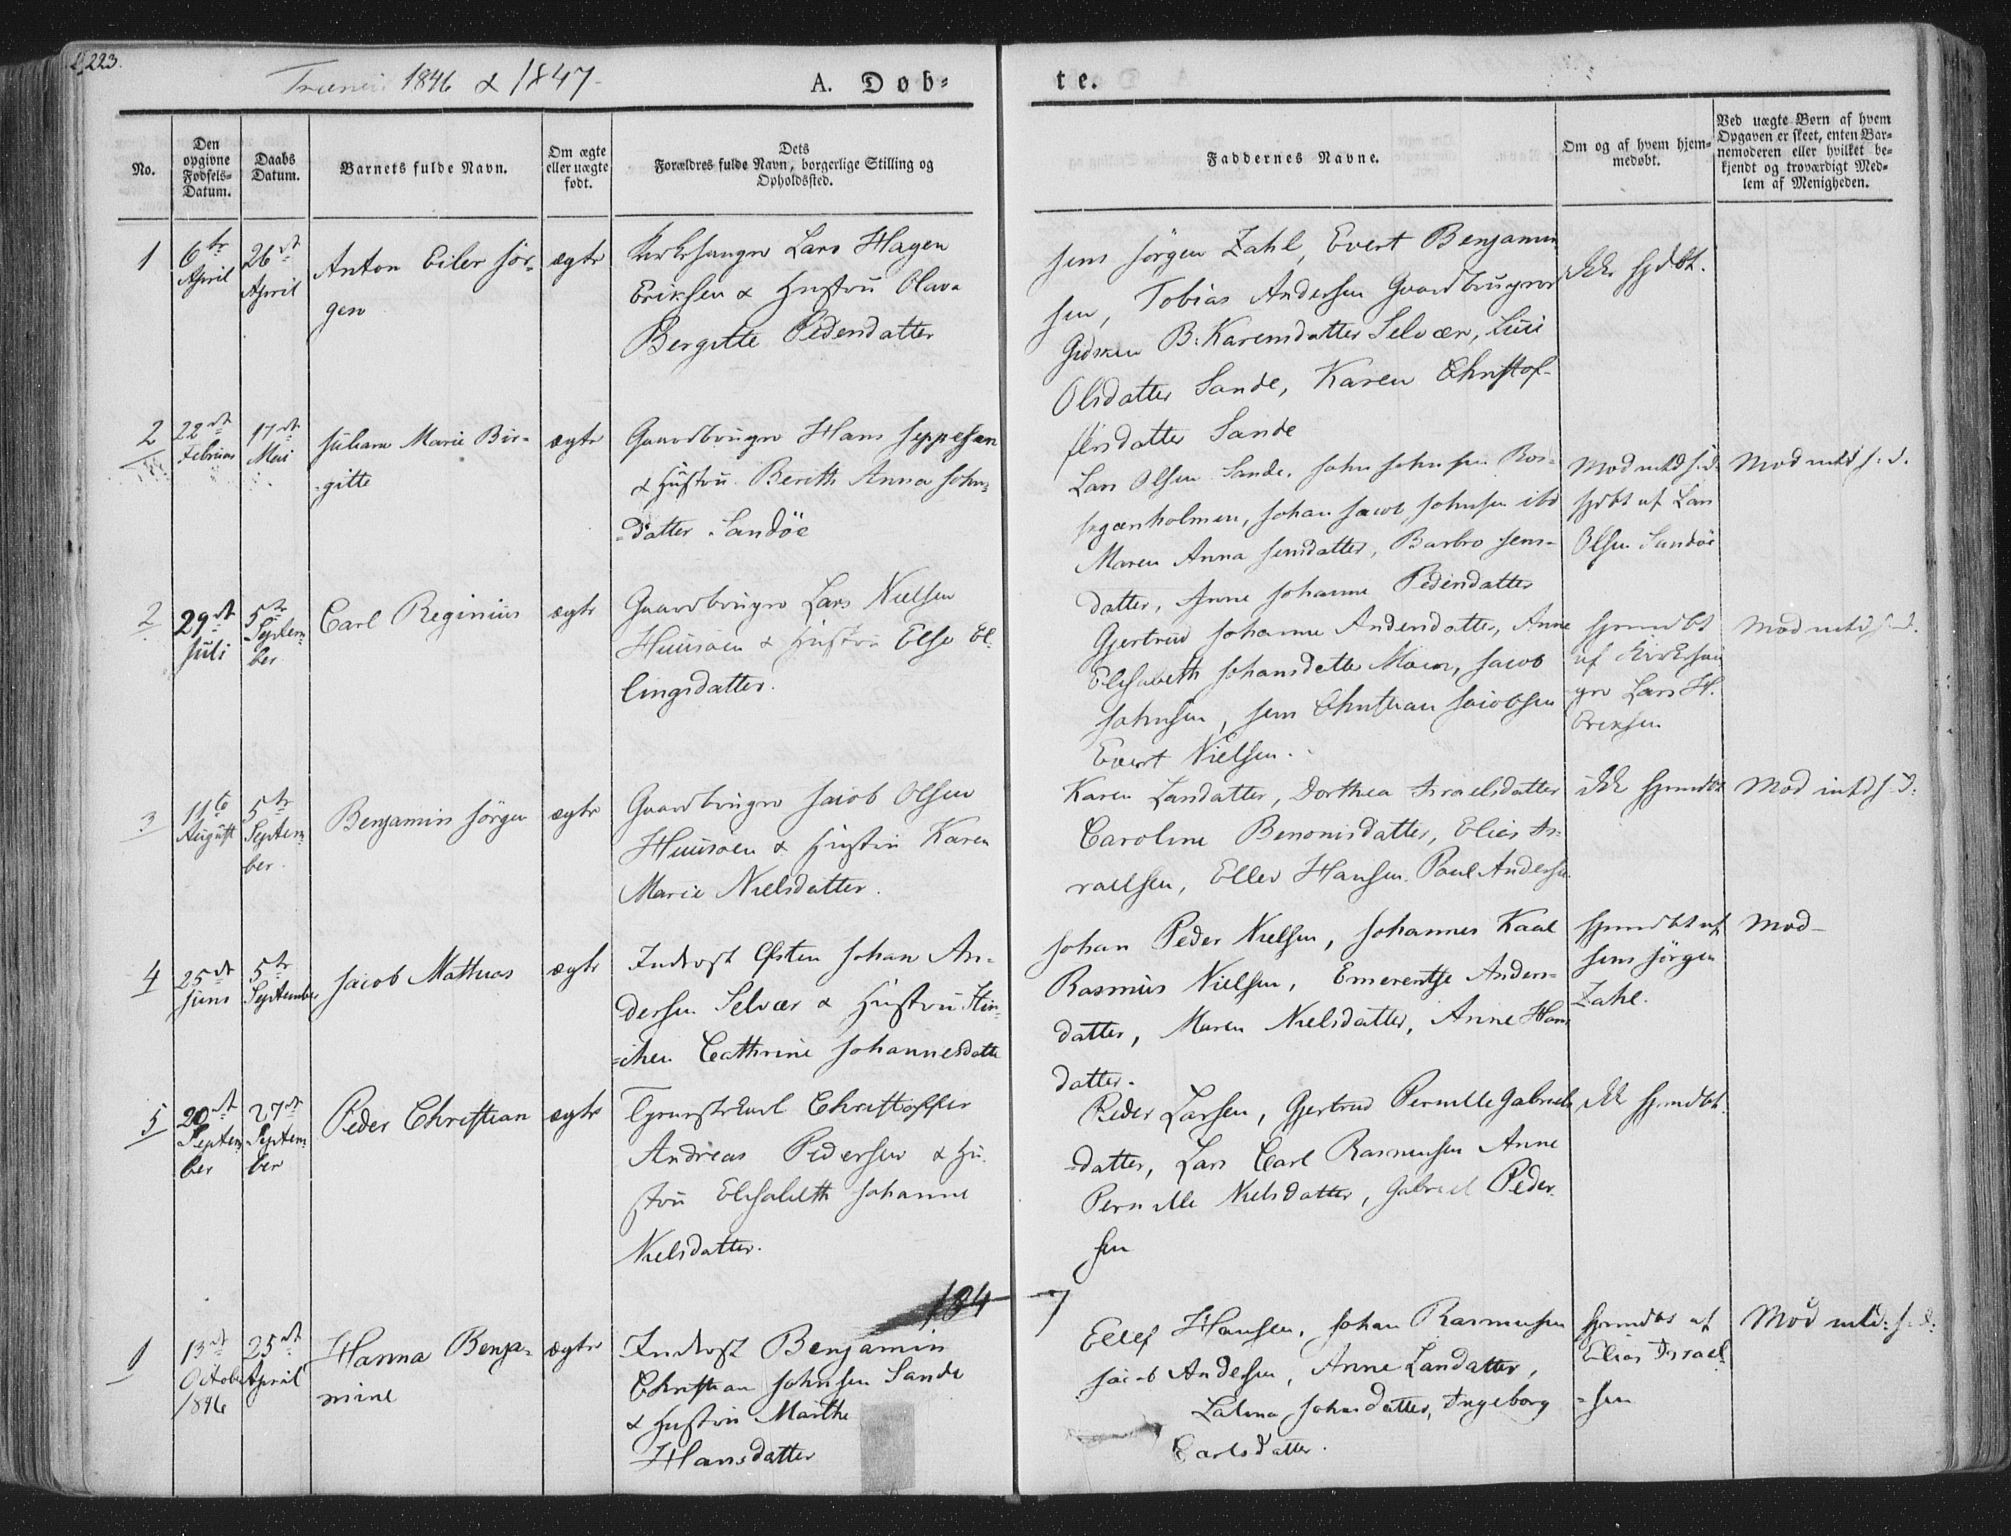 223.
Trænen 1846 & 1847.
A. Døb-
te.
No.
Den opgivne Fødsels-Datum.
Daabs Datum.
Barnets fulde Navn.
Om ægte eller uægte født.
Dets Forældres fulde Navn, borgerlige Stilling og Opholdssted.
Faddernes Navne.
Om og af hvem hjem-medøbt.
Ved uægte Børn af hvem Opgaven er skeet, enten Bar-nemoderen eller hvilket be-kjendt og troværdigt Med-lem af Menigheden.
1
6te April
26de April
Anton Eiler Jør-
gen
ægte
Kirkesanger Lars Hagen
Eriksen & Hustru Olava
Bergitte Pedersdatter
Jens Jörgen Zahl, Evert Benjamin
sen, Tobias Andersen Gaardbruger
B: Karensdatter Selvær,
Olsdatter Sande, Karen Christof-
fersdatter Sande
Ikke hjdbt.
2
22de Februar
17de Mai
Juliane Marie Bir-
gitte
ægte
Gaardbruger Hans Jeppesen
& Hustru Berith Anna John-
datter Sandöe
Lars Olsen Sande, John Johnsen
holmen, Johan Jacob Johnsen ibd
Maren Anna Jensdatter, Barbro Jens-
datter, Anne Johanne Pedersdatter
hjdbt af Lars
Olsen Sandöe
2
29de Juli
5te Septem-
ber
Carl Reginius
ægte
Gaardbruger Lars Nielsen
Huusöen & Hustru Else El-
lingsdatter.
Gjertrud Johanne Andersdatter, Anne
Elisabeth Johansdatter Moen, Jacob
Johnsen, Jens Christian Jacobsen
Evert Nielsen.
hjemdbt
af Kirkesan
ger Lars H.
Eriksen
3
11te August
5te Septem-
ber.
Benjamin Jörgen
ægte
Gaardbruger Jacob Olsen
Huusöen & Hustru Karen
Marie Nielsdatter.
Karen Larsdatter, Dorthea Israelsdatter
Caroline Benonisdatter, Elias Is-
raelsen, Ellev Hansen. Paul Andersen
ikke hjemdbt
4
25de Juni
5te September
Jacob Mathias
ægte
Inderst Østen Johan An-
dersen Selvær & Hustru Hin-
ichen Cathrine Johannesdatter
Johan Peder Nielsen, Johannes Kaal
Rasmus Nielsen, Emerentse Anders-
datter, Maren Nielsdatter, Anne Hans
datter.
hjemdbt af
Jens Jörgen
Zahl.
Mod-
5
20de Septem-
ber
27de Septem-
ber
Peder Christian
ægte
Tjenestekarl Christoffer
Andreas Pedersen & Hu-
stru Elisabeth Johanne
Nielsdatter.
Peder Larsen, Gjertrud Pernille Gabriels
-datter, Lars Carl Rasmussen Anne
Pernille Nielsdatter, Gabriel Peder-
sen
Ikke hjemdbt.
184
7
1
13de October 1846
25de April
Hanna Benja-
mine
ægte
Inderst Benjamin
Christian Johnsen Sande
& Hustru Marthe
Hansdatter
Ellef Hansen, Johan Rasmussen
Jacob Andersen, Anne Larsdatter,
Johnsdatter, Ingeborg
Carlsdatter.
hjemdbt af
Elias Israel
-sen